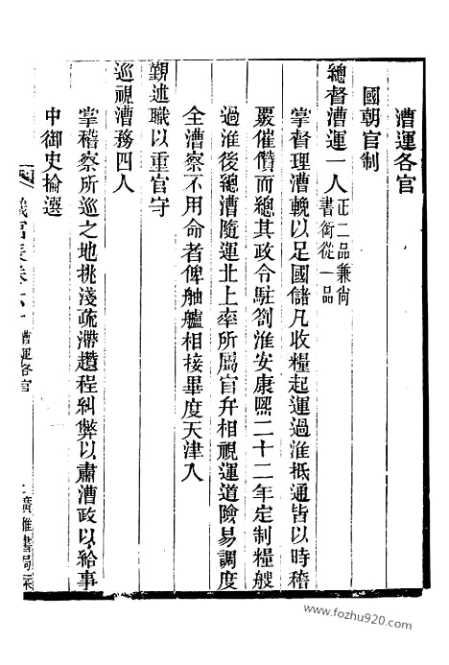 漕運各官
國朝官制
總督漕運一人正二品兼尚書銜從一品
掌督理漕輓以足國儲凡收糧起運過淮抵通皆以時稽
覈催儹而總其政令駐劄淮安康熙二十二年定制糧艘
過淮後總漕隨運北上率所屬官弁相視運道險易調度
全漕察不用命者俾舳艫相接畢度天津入
覲述職以重官守
巡視漕務四人
掌稽察所巡之地挑淺疏滯趲程糾弊以肅漕政以給事
中御史掄選
職官表卷六十 漕運各官
廣雅書局栞
www.fozhu920.com